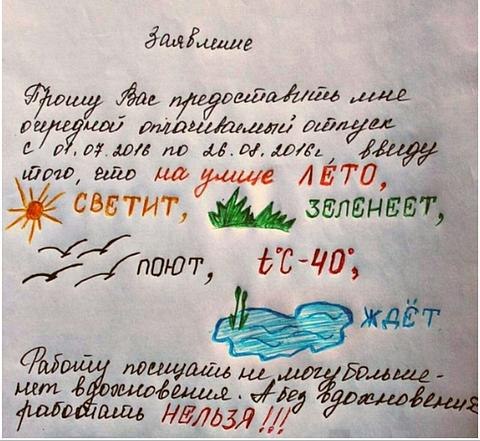 Заявление
Прошу Вас предоставить мне
очередной оплачиваемый отпуск
с 01.07.2016 по 26.08.2016г ввиду
того, что на улице ЛЁТО,
СВЕТИТ, ЗЕЛЕНЕЕТ,
ПОЮТ, t°C-40°,
ЖДЁТ
Работу посещать не могу больше-
нет вдохновения. А без вдохновения
работать НЕЛЬЗЯ!!!